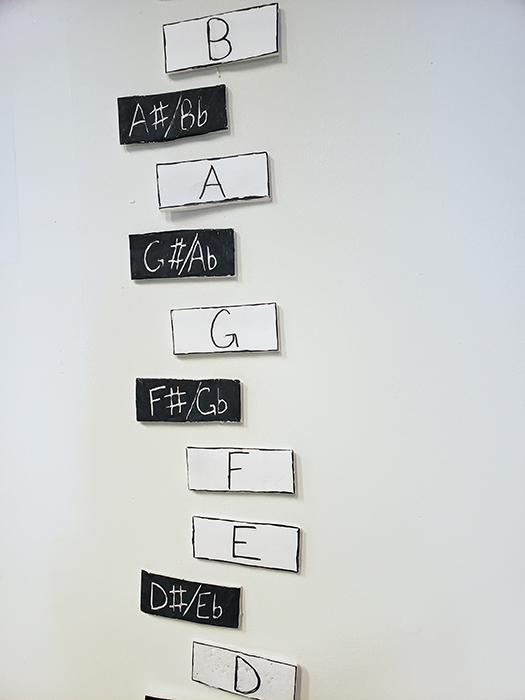 B
A#/Bb
A
G#/Ab
G
F#/Gb
F
E
D#/Eb
D